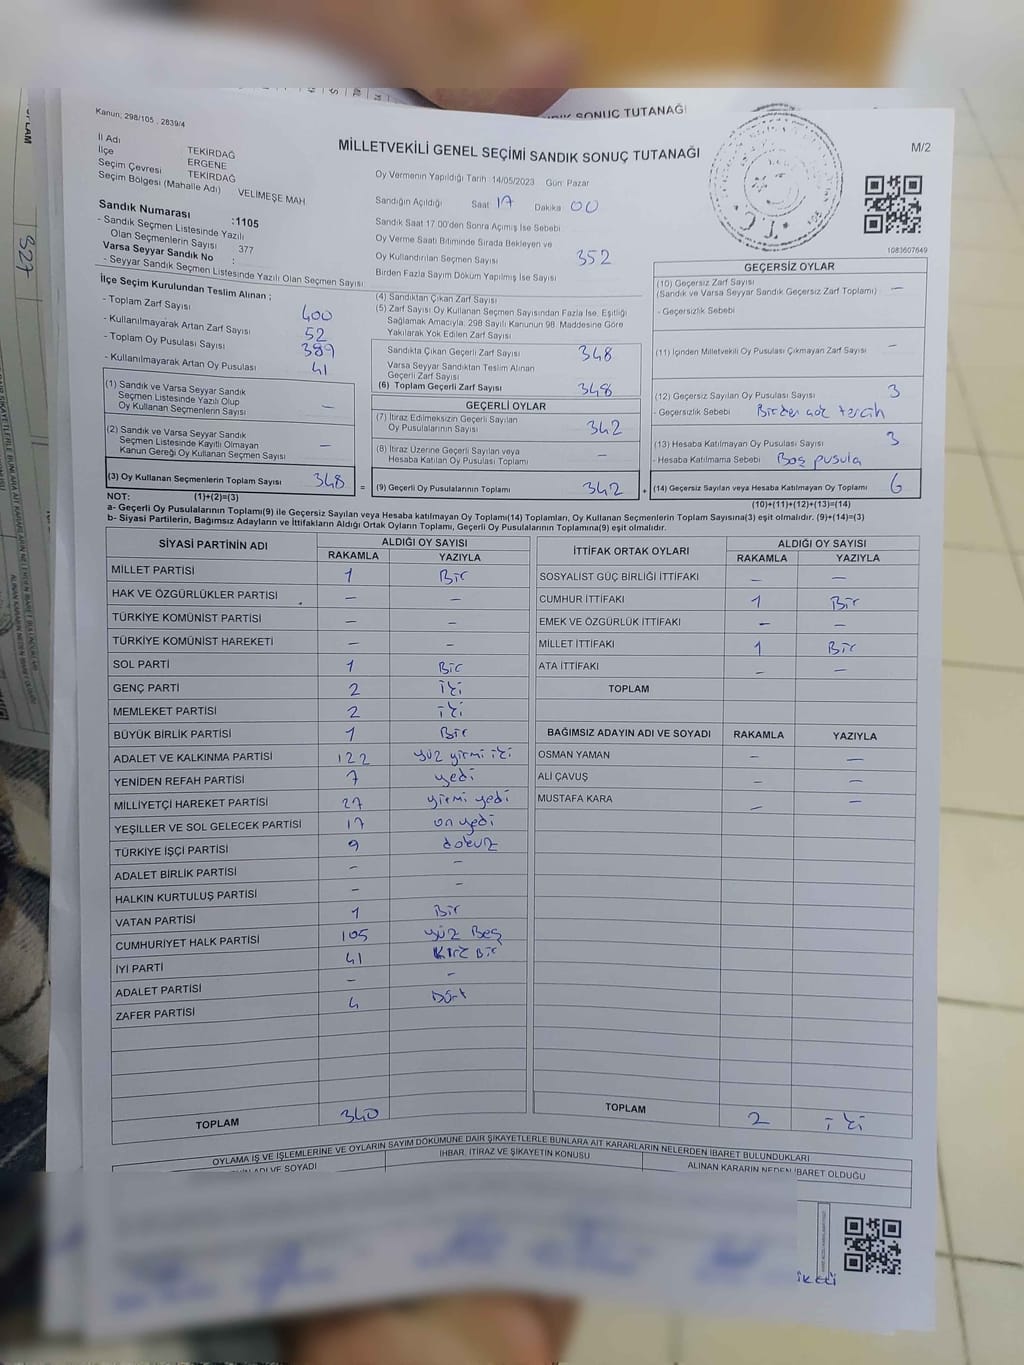 SONUÇ TUTANAĞI
Kanun: 298/105 , 2839/4
MİLLETVEKİLİ GENEL SEÇİMİ SANDIK SONUÇ TUTANAĞI
M/2
İl Adı TEKİRDAĞ
İlçe ERGENE
Seçim Çevresi TEKİRDAĞ
Seçim Bölgesi (Mahalle Adı) VELİMEŞE MAH.
Sandık Numarası :1105
- Sandık Seçmen Listesinde Yazılı
Olan Seçmenlerin Sayısı : 377
Varsa Seyyar Sandık No :
- Seyyar Sandık Seçmen Listesinde Yazılı Olan Seçmen Sayısı
Oy Vermenin Yapıldığı Tarih: 14/05/2023 Gün: Pazar
Sandığın Açıldığı Saat 17 Dakika 00
Sandık Saat 17.00'den Sonra Açımış İse Sebebi
Oy Verme Saati Bitiminde Sırada Bekleyen ve
Oy Kullandırılan Seçmen Sayısı 352
Birden Fazla Sayım Döküm Yapılmış İse Sayısı
1083607649
İlçe Seçim Kurulundan Teslim Alınan ;
- Toplam Zarf Sayısı 400
- Kullanılmayarak Artan Zarf Sayısı 52
- Toplam Oy Pusulası Sayısı 389
- Kullanılmayarak Artan Oy Pusulası 41
(1) Sandık ve Varsa Seyyar Sandık
Seçmen Listesinde Yazılı Olup
Oy Kullanan Seçmenlerin Sayısı –
(2) Sandık ve Varsa Seyyar Sandık
Seçmen Listesinde Kayıtlı Olmayan
Kanun Gereği Oy Kullanan Seçmen Sayısı –
(3) Oy Kullanan Seçmenlerin Toplam Sayısı 348
(4) Sandıktan Çıkan Zarf Sayısı
(5) Zarf Sayısı Oy Kullanan Seçmen Sayısından Fazla İse, Eşitliği
Sağlamak Amacıyla, 298 Sayılı Kanunun 98. Maddesine Göre
Yakılarak Yok Edilen Zarf Sayısı
Sandıkta Çıkan Geçerli Zarf Sayısı 348
Varsa Seyyar Sandıktan Teslim Alınan
Geçerli Zarf Sayısı
(6) Toplam Geçerli Zarf Sayısı 348
GEÇERLİ OYLAR
(7) İtiraz Edilmeksizin Geçerli Sayılan
Oy Pusulalarının Sayısı 342
(8) İtiraz Üzerine Geçerli Sayılan veya
Hesaba Katılan Oy Pusulası Toplamı –
= (9) Geçerli Oy Pusulalarının Toplamı 342
GEÇERSİZ OYLAR
(10) Geçersiz Zarf Sayısı
(Sandık ve Varsa Seyyar Sandık Geçersiz Zarf Toplamı) –
- Geçersizlik Sebebi
(11) İçinden Milletvekili Oy Pusulası Çıkmayan Zarf Sayısı –
(12) Geçersiz Sayılan Oy Pusulası Sayısı 3
- Geçersizlik Sebebi Birden çok tercih
(13) Hesaba Katılmayan Oy Pusulası Sayısı 3
- Hesaba Katılmama Sebebi Boş pusula
+ (14) Geçersiz Sayılan veya Hesaba Katılmayan Oy Toplamı 6
NOT: (1)+(2)=(3) (10)+(11)+(12)+(13)=(14)
a- Geçerli Oy Pusulalarının Toplamı(9) ile Geçersiz Sayılan veya Hesaba katılmayan Oy Toplamı(14) Toplamları, Oy Kullanan Seçmenlerin Toplam Sayısına(3) eşit olmalıdır. (9)+(14)=(3)
b- Siyasi Partilerin, Bağımsız Adayların ve İttifakların Aldığı Ortak Oyların Toplamı, Geçerli Oy Pusulalarının Toplamına(9) eşit olmalıdır.
SİYASİ PARTİNİN ADI ALDIĞI OY SAYISI
RAKAMLA YAZIYLA
MİLLET PARTİSİ 1 Bir
HAK VE ÖZGÜRLÜKLER PARTİSİ – –
TÜRKİYE KOMÜNİST PARTİSİ – –
TÜRKİYE KOMÜNİST HAREKETİ – –
SOL PARTİ 1 Bir
GENÇ PARTİ 2 iki
MEMLEKET PARTİSİ 2 iki
BÜYÜK BİRLİK PARTİSİ 1 Bir
ADALET VE KALKINMA PARTİSİ 122 yüz yirmi iki
YENİDEN REFAH PARTİSİ 7 yedi
MİLLİYETÇİ HAREKET PARTİSİ 27 yirmi yedi
YEŞİLLER VE SOL GELECEK PARTİSİ 17 on yedi
TÜRKİYE İŞÇİ PARTİSİ 9 dokuz
ADALET BİRLİK PARTİSİ – –
HALKIN KURTULUŞ PARTİSİ – –
VATAN PARTİSİ 1 Bir
CUMHURİYET HALK PARTİSİ 105 yüz Beş
İYİ PARTİ 41 Kırk Bir
ADALET PARTİSİ – –
ZAFER PARTİSİ 4 Dört
TOPLAM 340
İTTİFAK ORTAK OYLARI ALDIĞI OY SAYISI
RAKAMLA YAZIYLA
SOSYALİST GÜÇ BİRLİĞİ İTTİFAKI – –
CUMHUR İTTİFAKI 1 Bir
EMEK VE ÖZGÜRLÜK İTTİFAKI – –
MİLLET İTTİFAKI 1 Bir
ATA İTTİFAKI – –
TOPLAM
BAĞIMSIZ ADAYIN ADI VE SOYADI RAKAMLA YAZIYLA
OSMAN YAMAN – –
ALİ ÇAVUŞ – –
MUSTAFA KARA – –
TOPLAM 2 iki
OYLAMA İŞ VE İŞLEMLERİNE VE OYLARIN SAYIM DÖKÜMÜNE DAİR ŞİKAYETLERLE BUNLARA AİT KARARLARIN NELERDEN İBARET BULUNDUKLARI
ADI VE SOYADI İHBAR, İTİRAZ VE ŞİKAYETİN KONUSU ALINAN KARARIN NEDEN İBARET OLDUĞU
327